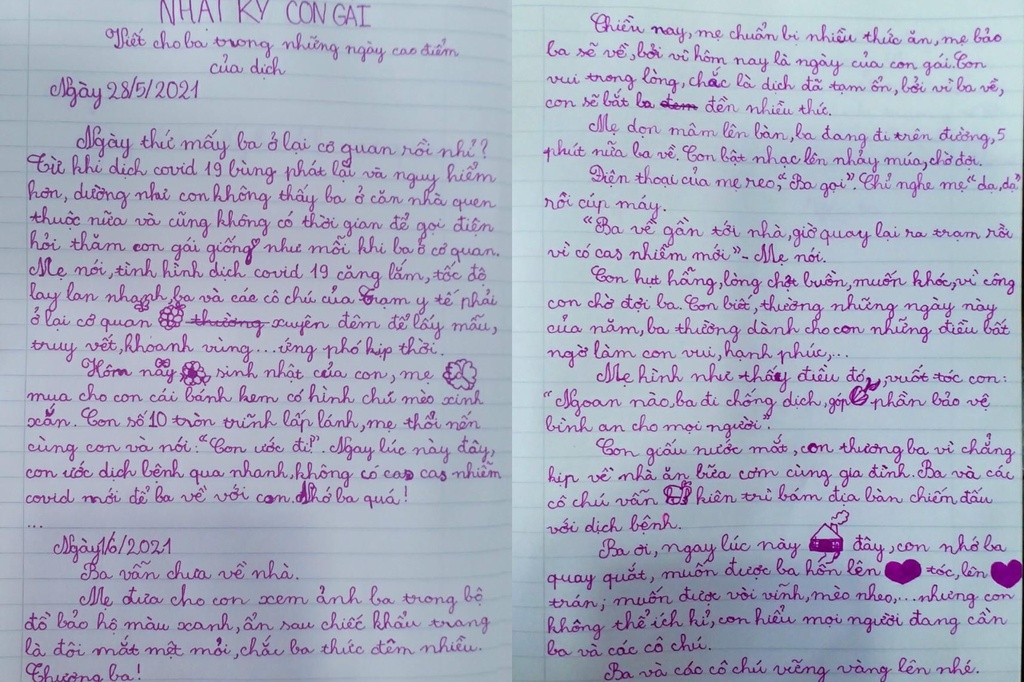 NHẬT KÝ CON GÁI
Viết cho ba trong những ngày cao điểm
của dịch
Ngày 28/5/2021
Ngày thứ mấy ba ở lại cơ quan rồi nhỉ?
Từ khi dịch covid 19 bùng phát lại và nguy hiểm
hơn, dường như con không thấy ba ở căn nhà quen
thuộc nữa và cũng không có thời gian để gọi điện
hỏi thăm con gái giống như mỗi khi ba ở cơ quan.
Mẹ nói, tình hình dịch covid 19 căng lắm, tốc độ
lây lan nhanh, ba và các cô chú của Trạm y tế phải
ở lại cơ quan thường xuyên đêm để lấy mẫu,
truy vết, khoanh vùng...ứng phó kịp thời.
Hôm nay sinh nhật của con, mẹ
mua cho con cái bánh kem có hình chú mèo xinh
xắn. Con số 10 tròn trĩnh lấp lánh, mẹ thổi nến
cùng con và nói: "Con ước đi!". Ngay lúc này đây,
con ước dịch bệnh qua nhanh, không có cas cas nhiễm
covid mới để ba về với con. Nhớ ba quá!
...
Ngày 1/6/2021
Ba vẫn chưa về nhà.
Mẹ đưa cho con xem ảnh ba trong bộ
đồ bảo hộ màu xanh, ẩn sau chiếc khẩu trang
là đôi mắt mệt mỏi, chắc ba thức đêm nhiều.
Thương ba!
Chiều nay, mẹ chuẩn bị nhiều thức ăn, mẹ bảo
ba sẽ về, bởi vì hôm nay là ngày của con gái. Con
vui trong lòng, chắc là dịch đã tạm ổn, bởi vì ba về,
con sẽ bắt ba đem đền nhiều thứ.
Mẹ dọn mâm lên bàn, ba đang đi trên đường, 5
phút nữa ba về. Con bật nhạc lên nhảy múa, chờ đợi.
Điện thoại của mẹ reo, "Ba gọi". Chỉ nghe mẹ "dạ, dạ"
rồi cúp máy.
"Ba về gần tới nhà, giờ quay lại ra trạm rồi
vì có cas nhiễm mới" - Mẹ nói.
Con hụt hẫng, lòng chợt buồn, muốn khóc, vì công
con chờ đợi ba. Con biết, thường những ngày này
của năm, ba thường dành cho con những điều bất
ngờ làm con vui, hạnh phúc,...
Mẹ hình như thấy điều đó, vuốt tóc con:
"Ngoan nào, ba đi chống dịch, góp phần bảo vệ
bình an cho mọi người".
Con giấu nước mắt, con thương ba vì chẳng
kịp về nhà ăn bữa cơm cùng gia đình. Ba và các
cô chú vẫn kiên trì bám địa bàn chiến đấu
với dịch bệnh.
Ba ơi, ngay lúc này đây, con nhớ ba
quay quắt, muốn được ba hôn lên tóc, lên
trán; muốn được vòi vĩnh, mèo nheo,...nhưng con
không thể ích kỉ, con hiểu mọi người đang cần
ba và các cô chú.
Ba và các cô chú vững vàng lên nhé.